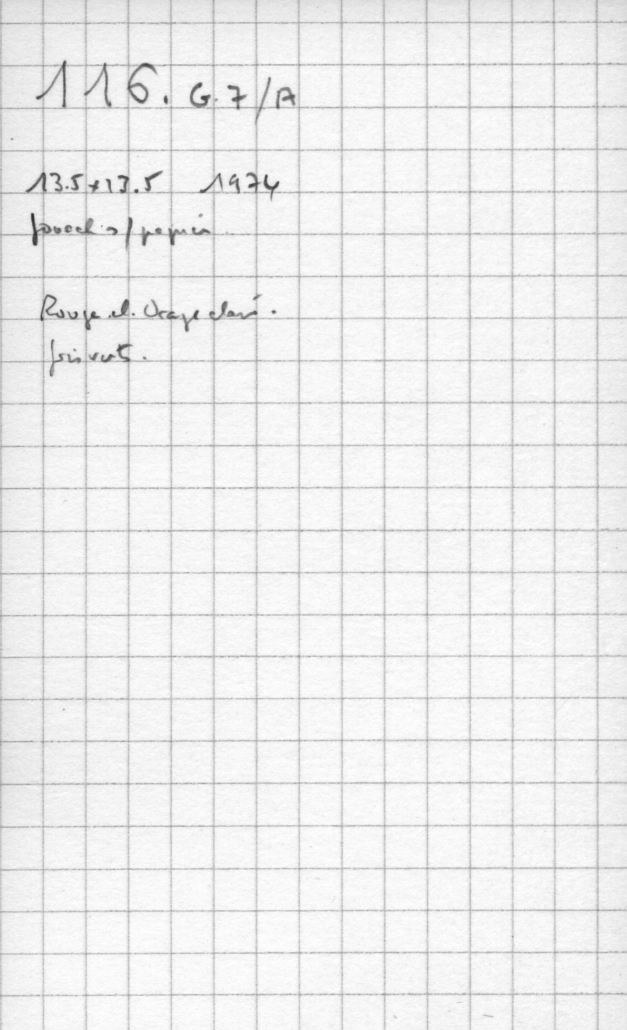 116. G.7/A
13.5x13.5 1974
gouache s/papier
Rouge cl. Orange clair.
gris vert.